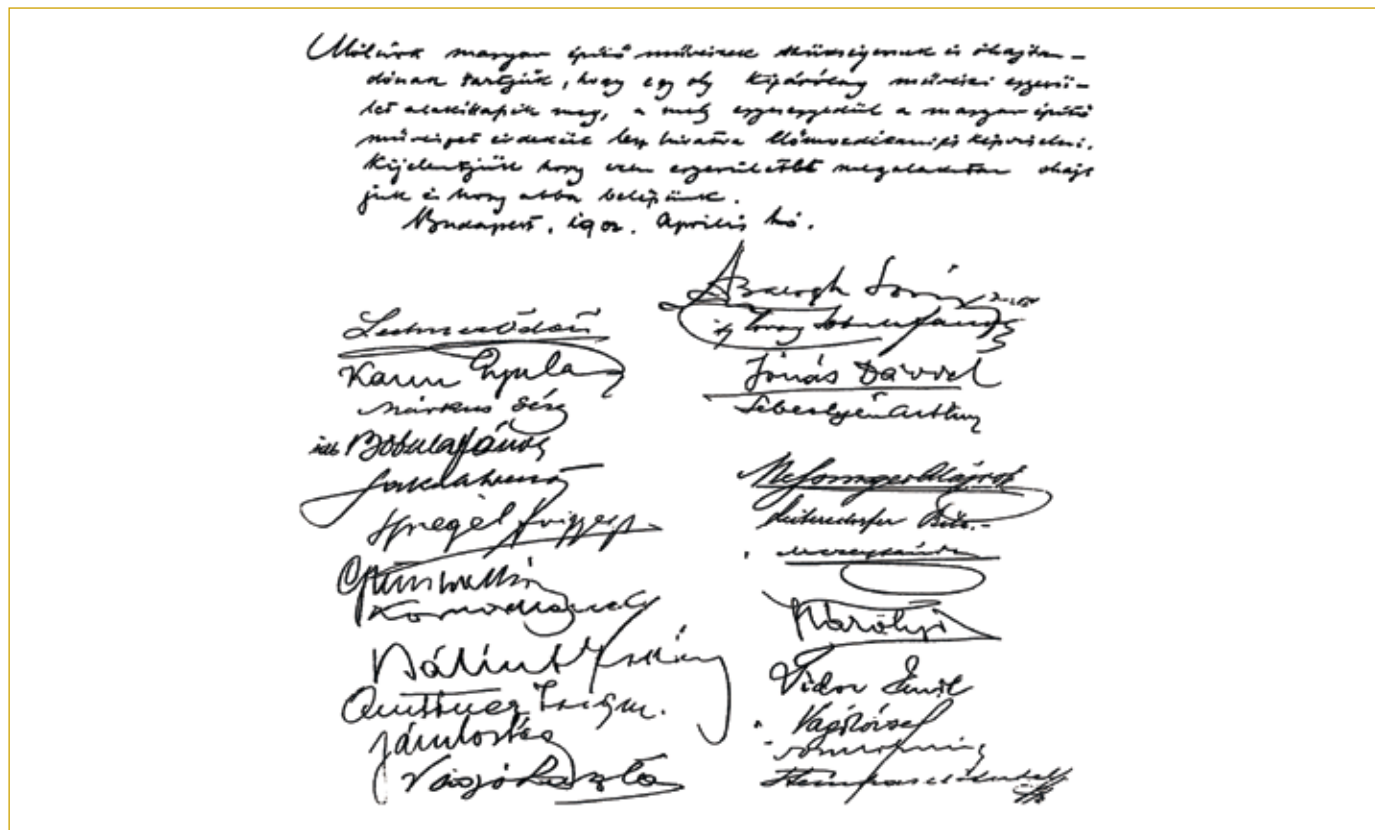 Alólírt magyar építő művészek szükségesnek és óhajtan-
dónak tartjuk, hogy egy oly kizárólag művészi egyesü-
let alakíttassék meg, a mely egyesegyedül a magyar építő
művészet érdekeit lesz hivatva előmozdítani és képviselni.
Kijelentjük hogy ezen egyesületet megalakítani óhajt
juk és hogy abba belépünk.
Budapest, 1902. Április hó.
Lechner Ödön
Kann Gyula
Márkus Géza
id. Bobula János
Spiegel Frigyes
Komor Marcell
Bálint Zoltán
Quittner Zsigm.
Jámbor
Vágó László
Baragh
Jónás Dávid
Sebestyén Artúr
Alajos
Béla
Károlyi
Vidor Emil
Vágó József